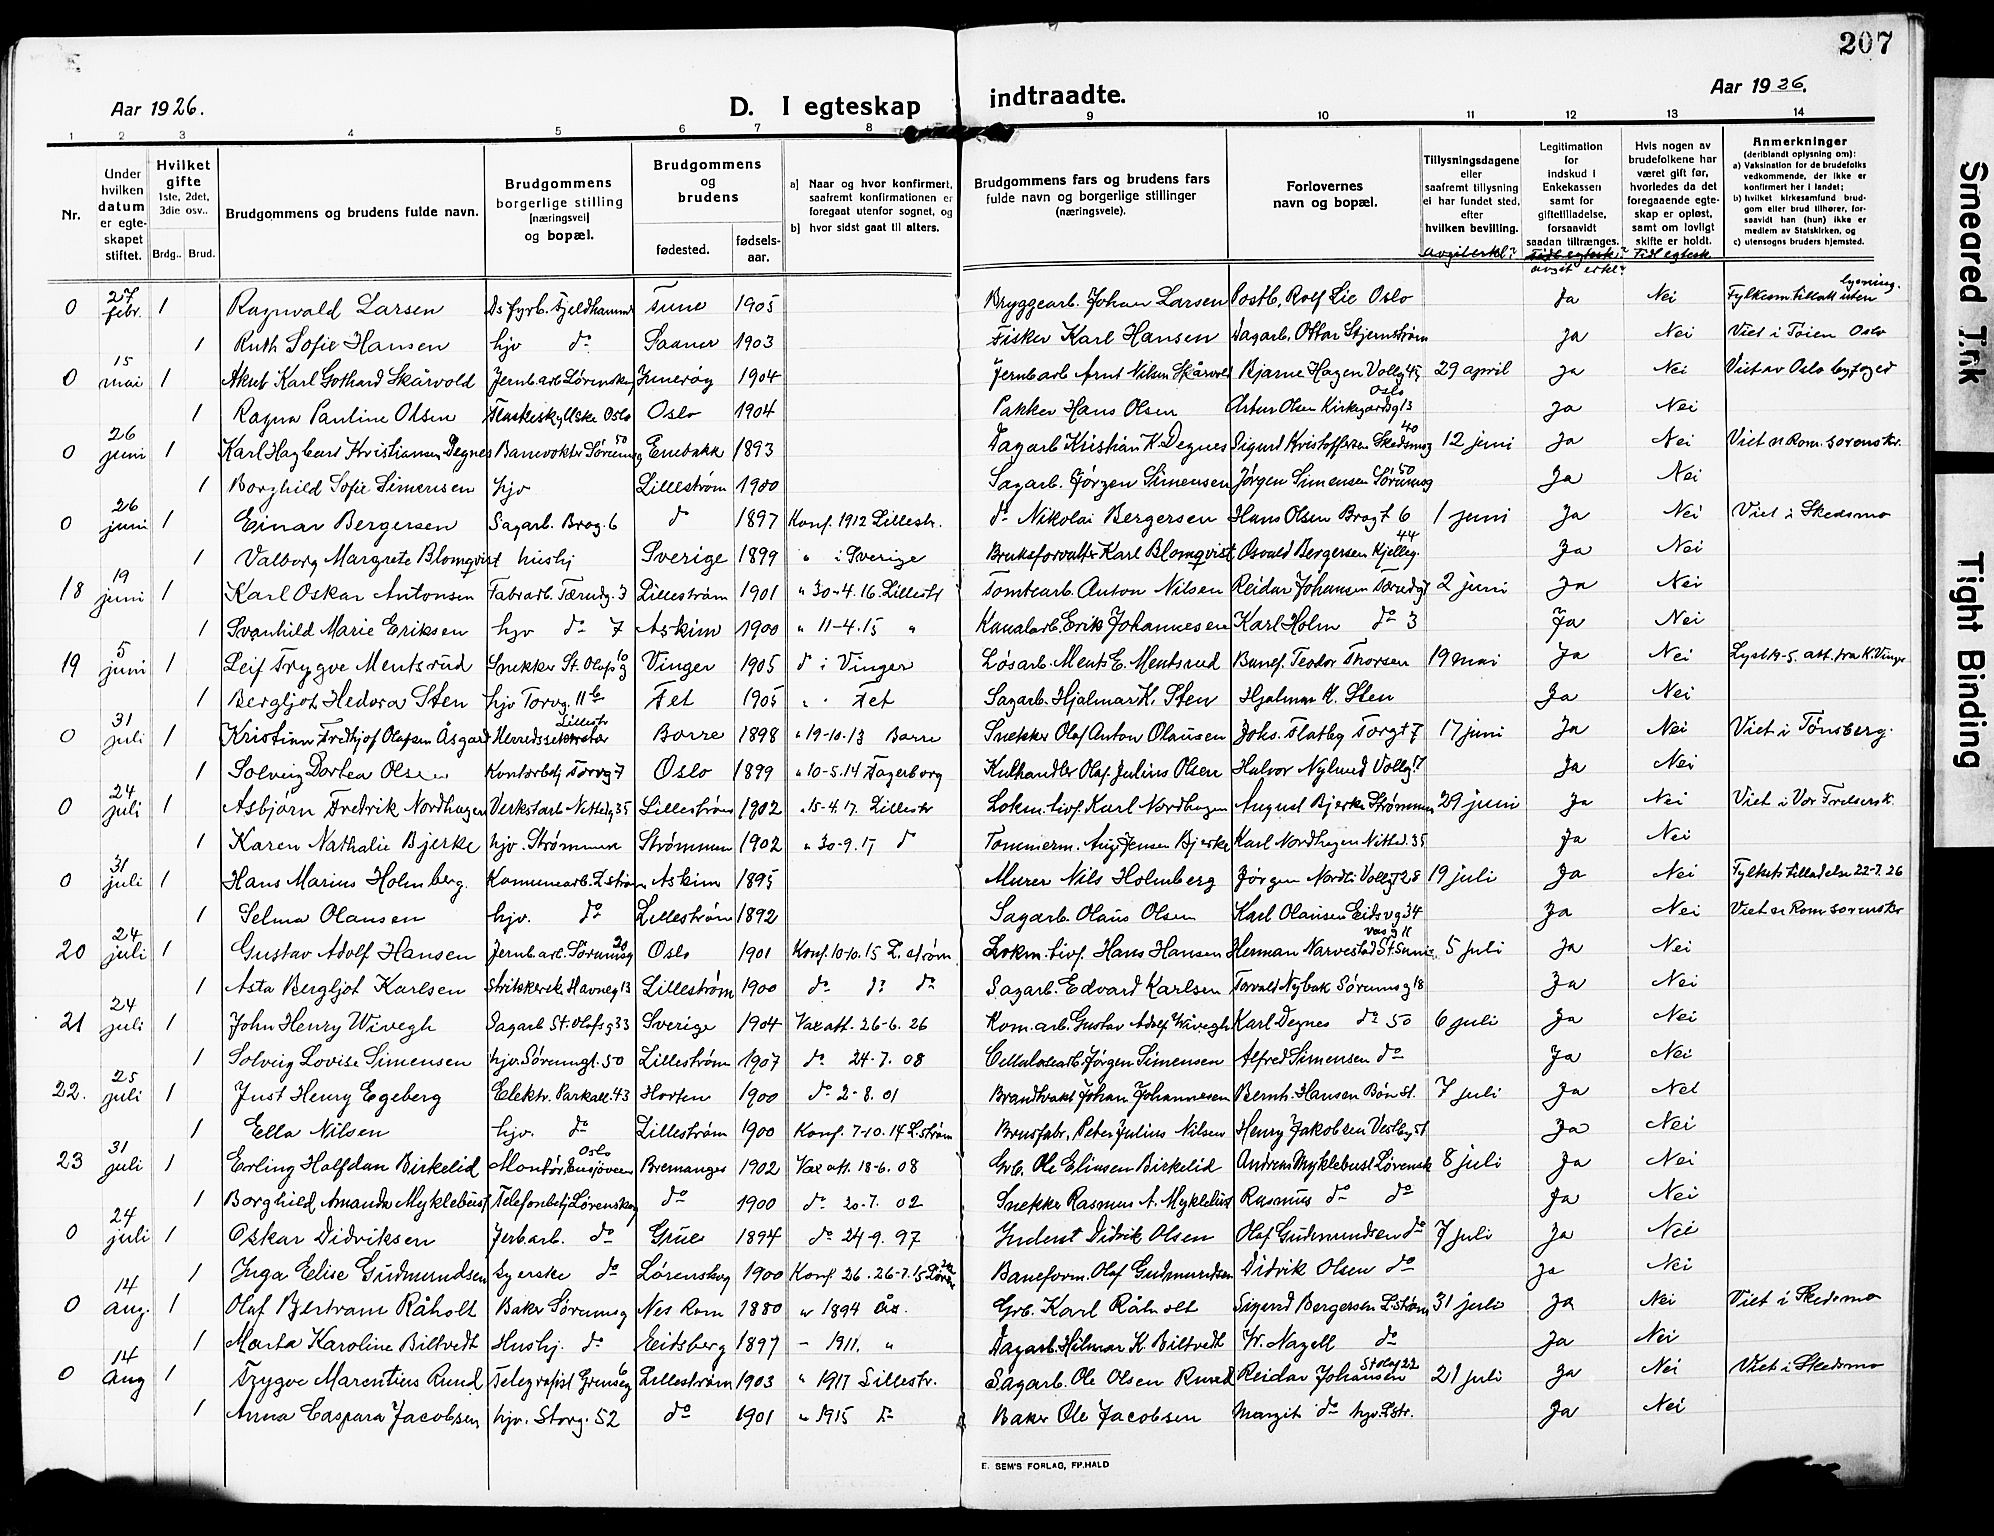 207
Aar 1926.
D. I egteskap indtraadte.
Aar 1926.
1 2 3 4 5 6 7 8 9 10 11 12 13 14
Nr.
Under hvilken datum er egteskapet stiftet.
Hvilket gifte 1ste, 2det, 3die osv..
Brdg.. Brud.
Brudgommens og brudens fulde navn.
Brudgommens borgerlige stilling (næringsvei) og bopæl.
Brudgommens og brudens
fødested. fødsels-aar.
a) Naar og hvor konfirmert, saafremt konfirmationen er foregaat utenfor sognet, og
b) hvor sidst gaat til alters.
Brudgommens fars og brudens fars fulde navn og borgerlige stillinger (næringsveie).
Forlovernes navn og bopæl.
Tillysningsdagene eller saafremt tillysning ei har fundet sted, efter hvilken bevilling.
Legitimation for indskud i Enkekassen samt for giftetilladelse, forsaavidt saadan tiltrænges.
avgit erkl?
Hvis nogen av brudefolkene har været gift før, hvorledes da det foregaaende egteskap er opløst, samt om lovligt skifte er holdt.
Tidl egtesk
Anmerkninger (deriblandt oplysning om): a) Vaksination for de brudefolks vedkommende, der ikke er konfirmert her i landet; b) hvilket kirkesamfund brudgom eller brud tilhører, forsaavidt han (hun) ikke er medlem av Statskirken, og c) utensogns bruders hjemsted.
0 27 febr. 1 Ragnvald Larsen Ds fyrb. Fjeldhammer Tune 1905 Bryggearb. Johan Larsen Postb. Rolf Lie Oslo Ja Nei Fylkesm tillatt uten lysning.
1 Ruth Sofie Hansen hjv do Saaner 1903 Fisker Karl Hansen Dagarb. Ottar Stjernstrøm Ja Nei Viet i Tøien Oslo
0 15 mai 1 Aknt Karl Gothard Skårvold Jernbarb Lørenskog Inderøy 1904 Jernb arb Arnt Nilsen Skårvold Bjarne Hagen Vollg 45 29 april Ja Nei Viet av Oslo byfoged
1 Ragna Pauline Olsen Flaskeskyllske Oslo Oslo 1904 Pakker Hans Olsen Artur Olsen Kirkegårdsg 13 Oslo Ja Nei
0 26 juni 1 Karl Hagbart Kristiansen Degnes Banevokter Sørumsg 50 Enebakk 1893 Dagarb Kristian K. Degnes Sigurd Kristoffersen Skedsmog 40 12 juni Ja Nei Viet n Rom. sorenskr.
1 Borghild Sofie Simensen hjv Lillestrøm 1900 Sagarb. Jørgen Simensen Jørgen Simensen Sørumsg 50 Ja Nei
0 26 juni 1 Einar Bergersen Sagarb. Brag. 6 do 1897 Konf. 1912 Lillestr. do Nikolai Bergersen Hans Olsen Bragt 6 1 juni Ja Nei Viet i Skedsmo
1 Valborg Margrete Blomqvist hushj Sverige 1899 " i Sverige Bruksforvalter Karl Blomqvist Osvald Bergersen Kjelleg. 44 Ja Nei
18 19 juni 1 Karl Oskar Antonsen Fabrarb. Tærudg. 3 Lillestrøm 1901 " 30-4.16. Lillestr Tomtearb. Anton Nilsen Reidar Johansen Tærudg 7 2 juni Ja Nei
1 Svanhild Marie Eriksen hjv do 7 Askim 1900 " 11-4.15 " Kanalarb. Erik Johannesen Karl Holm do 3 Ja Nei
19 5 juni 1 Leif Trygve Mentsrud Snekker St. Olafsg 10 Vinger 1905 d i Vinger Løsarb. Ments E. Mentsrud Banef. Teodor Thorsen 19 mai Ja Nei Lyst 19-5. att. fra K.Vinger
1 Bergljot Hedora Sten hjv Torvg. 11b Fet 1905 " " Fet Sagarb. Hjalmar K. Sten Hjalmar K. Sten Ja Nei
0 31 juli 1 Kristian Fredthjof Olafsen Åsgard Herredssekretær Lillestr Borre 1898 " 19-10.13 Borre Snekker Olaf Anton Olausen Johs. Flatby Torgt 7 17 juni Ja Nei Viet i Tønsberg.
1 Solveig Dortea Olsen Kontorbetj Torvg 7 Oslo 1899 " 10-5.14 Fagerborg Kulhandler Olaf Julius Olsen Halvor Nylund Vollg 17 Ja Nei
0 24 juli 1 Asbjørn Fredrik Nordhagen Verkstarb. Nittedg 35 Lillestrøm 1902 " 15-4.17. Lillestr Lokm. tivf. Karl Nordhagen August Bjerke Strømmen 29 juni Ja Nei Viet i Vor Frelsersk.
1 Karen Nathalie Bjerke hjv. Strømmen Strømmen 1902 " 30-9.17 d Tømmerm. Aug. Jensen Bjerke Karl Nordhagen Nitted. 35 Ja Nei
0 31 juli 1 Hans Marius Holmberg. Komunearb. L.strøm Askim 1895 Murer Nils Holmberg Jørgen Nordli Vollgt 28 19 juli Ja Nei Fylkets tilladelse 22-7.26
1 Selma Olausen hjv. do Lillestrøm 1892 Sagarb. Olaus Olsen Karl Olausen Eidsvg 34 Ja Nei Viet n Rom sorenskr
20 24 juli 1 Gustav Adolf Hansen Jernb. arb. Sørumsg 20 Oslo 1901 Konf. 10-10.15 L.strøm Lokm. tivf. Hans Hansen Herman Narvestad St. Sunnivasg 11 5 juli Ja Nei
1 Asta Bergljot Karlsen Strikkerske Havneg 13 Lillestrøm 1900 do do do Sagarb. Edvard Karlsen Torvald Nybak Sørumsg 18 Ja Nei
21 24 juli 1 John Henry Wivegh Sagarb St. Olafsg 33 Sverige 1904 Vax att. 26-6.26 Kom. arb. Gustav Adolf Wivegh Karl Degnes do 50 6 juli Ja Nei
1 Solveig Lovise Simensen hjv. Sørumgt. 50 Lillestrøm 1907 do 24-7.08 Cellulosearb. Jørgen Simensen Alfred Simensen do Ja Nei
22. 25 juli 1 Just Henry Egeberg Elektr. Parkall. 43 Horten 1900 do 2-8.01 Brandvakt Johan Johannesen Bernh. Hansen Bøn St. 7 juli Ja Nei
1 Ella Nilsen hjv. do Lillestrøm 1900 Konf. 7-10.14 L.strøm Brusfabr. Peter Julius Nilsen Henry Jakobsen Vestbyst Ja Nei
23 31 juli 1 Erling Halfdan Birkelid Montør, Ensjøveien Oslo Bremanger 1902 Vax att. 18-6.08 Grb. Ole Eliasen Birkelid Andreas Myklebust Lørensk 8 juli Ja Nei
1 Borghild Amanda Myklebust Telefonbetj Lørenskog do 1900 do 20-7.02 Snekker Rasmus A. Myklebust Rasmus do do Ja Nei
0 24 juli 1 Oskar Didriksen Jerb arb. do Grue 1894 do 24-9.97 Inderst Didrik Olsen Olaf Gudmundsen do 7 juli Ja Nei
1 Inga Elise Gudmundsen Syerske do Lørenskog 1900 Konf 26.26-7.15 Baneform. Olaf Gudmundsen Didrik Olsen do Ja Nei
0 14 aug. 1 Olaf Bertram Råholt Baker Sørumsg Nes Rom 1880 " 1894 Ås. Grb. Karl Råholt Sigurd Bergersen L.strøm 31 juli Ja Nei Viet i Skedsmo
1 Marta Karoline Biltvedt Hushj. do Eidsberg 1897 - 1911. " Dagarb. Hilmar K. Biltvedt W. Nagell do Ja Nei
0 14 aug 1 Trygve Marentius Rund Telegrafist Grenseg 6 Lillestrøm 1903 " 1917 Lillestr. Sagarb. Ole Olsen Rund Reidar Johansen St Olaf 22 21 juli Ja Nei Viet i Skedsmo
1 Anna Caspara Jacobsen hjv. Storg. 52 do 1901 " 1915 do Baker Ole Jacobsen Margit do hjv. L.str. Ja Nei
E. SEM'S FORLAG, FR.HALD
Smeared Ink
Tight Binding